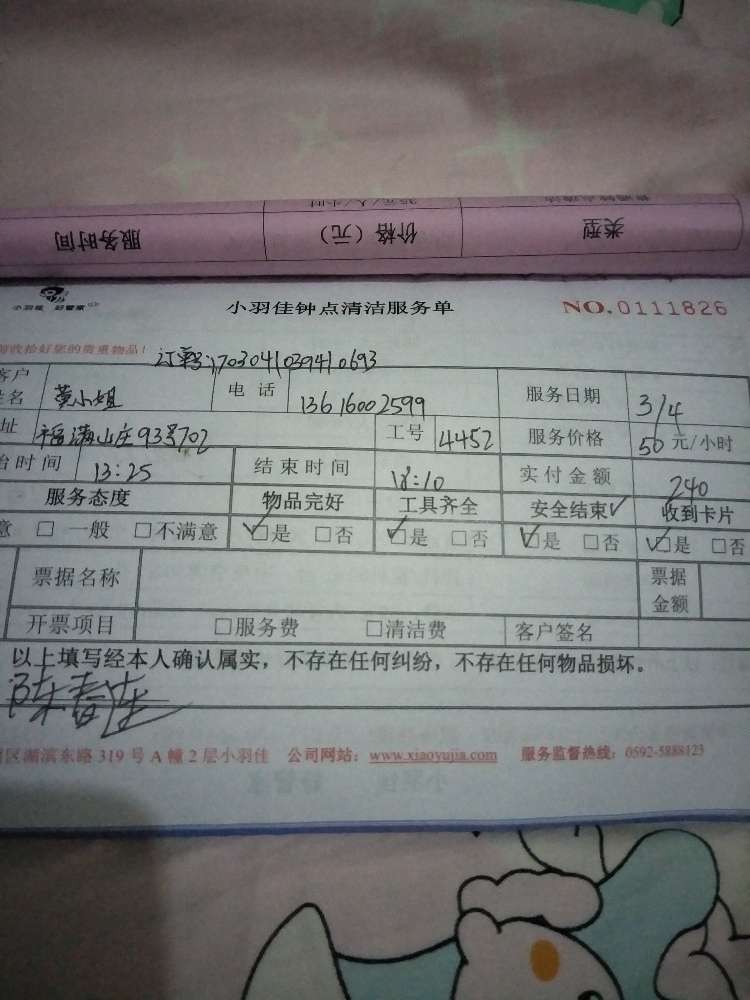 服务时间 价格（元） 类型
小羽佳 好管家
小羽佳钟点清洁服务单 NO.0111826
收拾好您的贵重物品！
订单号:1703041039410693
客户
姓名 黄小姐 电 话 13616002599 服务日期 3/4
址 福满山庄93号702 工号 4452 服务价格 50 元/小时
始时间 13:25 结束时间 18:10 实付金额 240
服务态度 物品完好 工具齐全 安全结束✓ 收到卡片
意 □ 一般 □不满意 ☑是 □否 ☑是 □否 ☑是 □否 ☑是 □否
票据名称 票据
金额
开票项目 □服务费 □清洁费 客户签名
以上填写经本人确认属实，不存在任何纠纷，不存在任何物品损坏。
区湖滨东路 319 号 A 幢 2 层小羽佳 公司网站：www.xiaoyujia.com 服务监督热线：0592-5888123